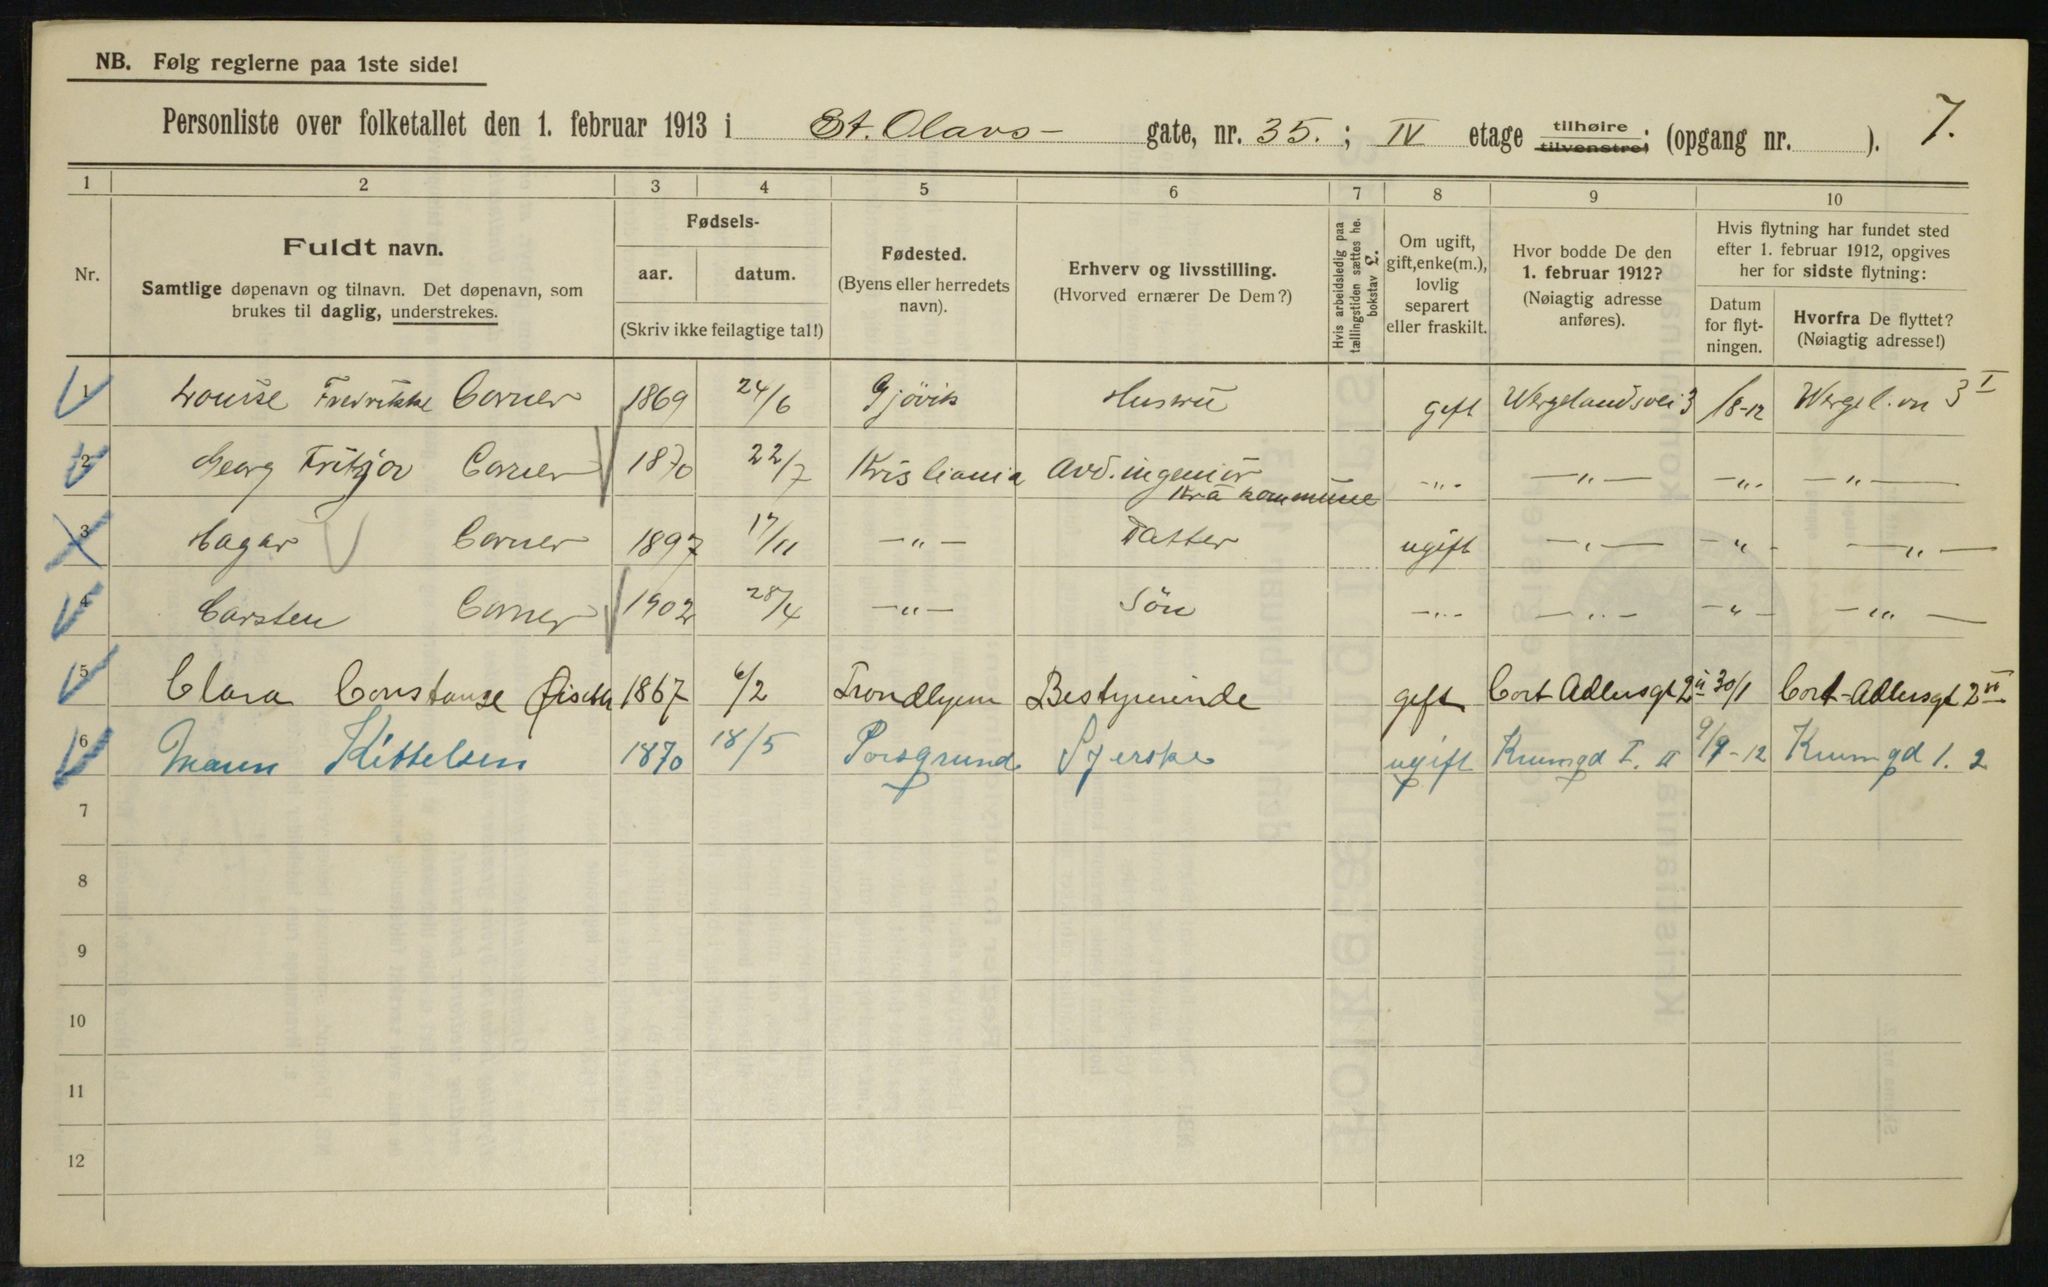 NB. Følg reglerne paa 1ste side!
Personliste over folketallet den 1. februar 1913 i St. Olavs- gate, nr. 35. ; IV etage tilhøire tilvenstre; (opgang nr. ). 7.
1 2 3 4 5 6 7 8 9 10
Nr.
Fuldt navn.
Samtlige døpenavn og tilnavn. Det døpenavn, som
brukes til daglig, understrekes.
Fødsels-
aar. datum.
(Skriv ikke feilagtige tal!)
Fødested.
(Byens eller herredets
navn).
Erhverv og livsstilling.
(Hvorved ernærer De Dem?)
Hvis arbeidsledig paa
tællingstiden sættes he.
bokstav L.
Om ugift,
gift, enke(m.),
lovlig
separert
eller fraskilt.
Hvor bodde De den
1. februar 1912?
(Nøiagtig adresse
anføres).
Hvis flytning har fundet sted
efter 1. februar 1912, opgives
her for sidste flytning:
Datum
for flyt-
ningen.
Hvorfra De flyttet?
(Nøiagtig adresse!)
1 Louise Fredrikke Corner 1869 24/6 Gjövik Husru gift Wergelandsvei 3 /8-12 Wergel.vn 3 I
2 Georg Fritjov Corner 1870 22/7 Kristiania Avd. ingeniör -"- -"- -"- -"-
Kra kommune
3 Hagar Corner 1897 17/11 -"- Datter ugift -"- -"- -"-
4 Carsten Corner 1902 28/4 -"- Sön -"- -"- -"- -"-
5 Clara Constanse 1867 6/2 Trondhjem Bestyrerinde gift Cort Adlersgt 2 30/1 Cort-Adlersgt 2
6 Maren Kittelsen 1870 18/5 Porsgrund Syerske ugift Krumgd I. II 9/9-12 Krumgd 1. 2
7
8
9
10
11
12